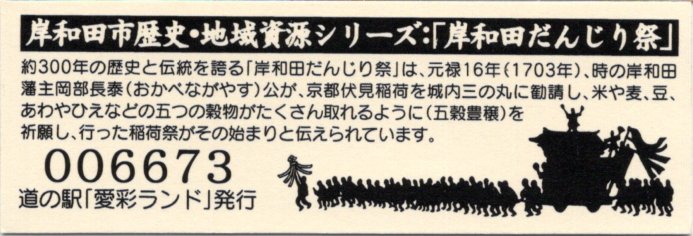 岸和田市歴史・地域資源シリーズ:「岸和田だんじり祭」
約300年の歴史と伝統を誇る「岸和田だんじり祭」は、元禄16年(1703年)、時の岸和田
藩主岡部長泰(おかべながやす)公が、京都伏見稲荷を城内三の丸に勧請し、米や麦、豆、
あわやひえなどの五つの穀物がたくさん取れるように(五穀豊穣)を
祈願し、行った稲荷祭がその始まりと伝えられています。
006673
道の駅「愛彩ランド」発行